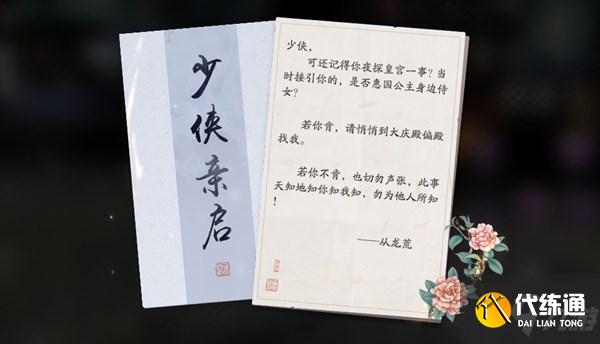 少侠亲启
少侠，
可还记得你夜探皇宫一事？当
时接引你的，是否惠国公主身边侍
女？
若你肯，请悄悄到大庆殿偏殿
找我。
若你不肯，也切勿声张，此事
天知地知你知我知，勿为他人所知
！
——从龙荒
代练通
DAI LIAN TONG